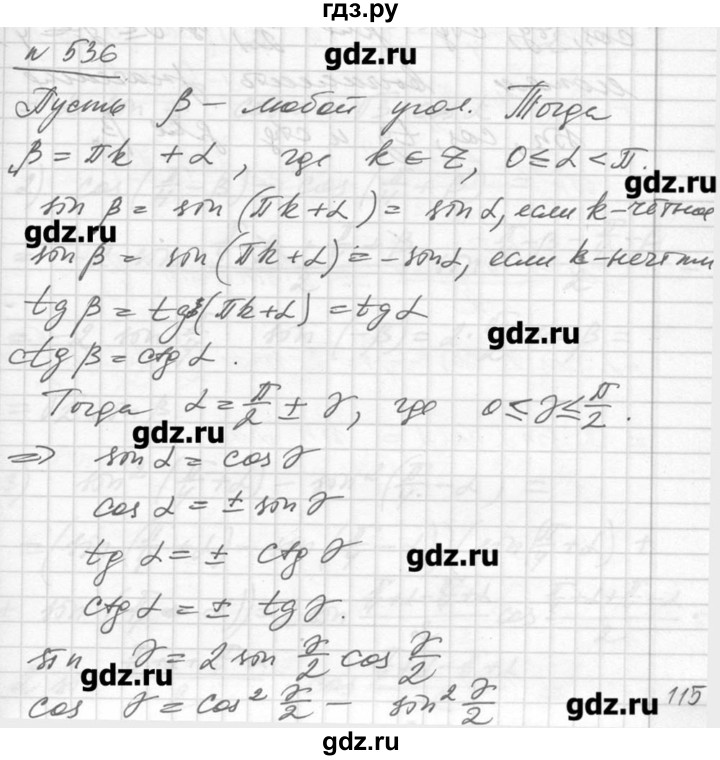 гдз.ру
n 536
gdz.ru
Пусть β – любой угол. Тогда
β = πk + α, где k ∈ Z, 0 ≤ α < π.
gdz.ru
sin β = sin (πk + α) = sin α, если k – четное
gdz.ru
sin β = sin (πk + α) = – sin α, если k – нечетн
tg β = tg (πk + α) = tg α
gdz.ru
ctg β = ctg α.
Тогда α = π/2 ± γ, где 0 ≤ γ ≤ π/2.
gdz.ru
=> sin α = cos γ
cos α = ± sin γ
tg α = ± ctg γ
gdz.ru
ctg α = ± tg γ.
sin γ = 2 sin γ/2 cos γ/2
gdz.ru
cos γ = cos² γ/2 – sin² γ/2
gdz.ru
115
gdz.ru